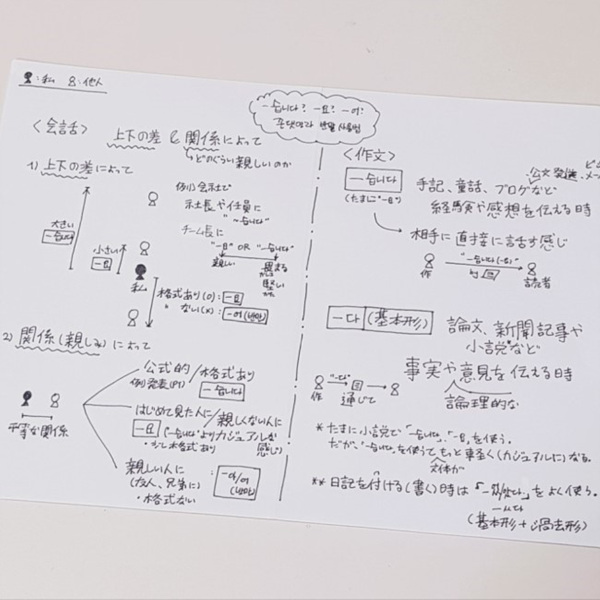 :私 :他人
-습니다? -요? -어?
존댓말과 반말 사용법
<会話>
上下の差 & 関係によって
どのぐらい親しいのか
1) 上下の差によって
大きい
-습니다
小さい
-요
私
例) 会社で
社長や任員に
"~습니다"
チーム長に
"-요" OR "-습니다"
親しい
格式あり(O): -요
ない(X): -어(반말)
2) 関係(親しみ)によって
平等な関係
公式的/格式あり
例) 発表(PT)
-습니다
はじめて見た人に/親しくない人に
-요
("-습니다"よりカジュアルな感じ)
格式あり
親しい人に
(友人、兄弟に)
・格式ない
-아/어
(반말)
<作文>
-습니다
(たまに"-요")
手記、童話、ブログなど
経験や感想を伝える時
相手に直接に話す感じ
作
"-습니다(-요)"
読者
-다 (基本形)
論文、新聞記事や
小説*など
事実や意見を伝える時
論理的な
作
"-다"
通じて
*たまに小説で「-습니다」、「-요」を使う。
だが、「-습니다」を使うともっと軽く(カジュアルに)なる。
文体が
**日記を付ける(書く)時は「-았/었다」をよく使う。
(基本形+過去形)